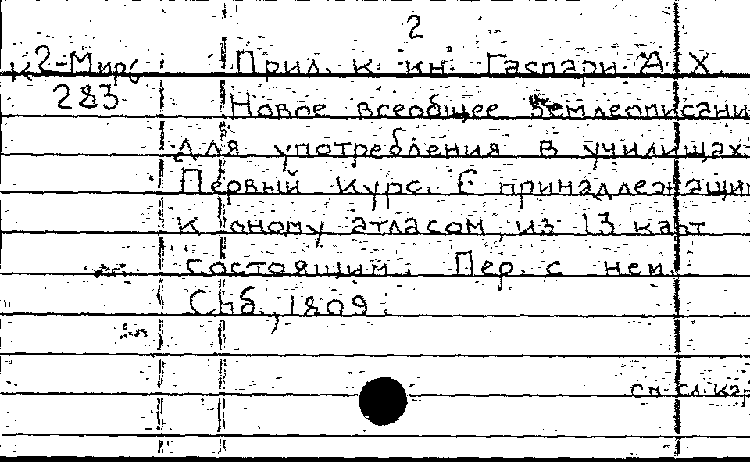 2
К2-Мир6 Прил. к кн. Гаспари А.Х.
283 Новое всеобщее землеописани
для употребления в училищах.
Первый курс. С принадлежащим
к оному атласом, из 13 карт
состоящим. Пер. с нем.
Спб., 1809.
см. сл. кар